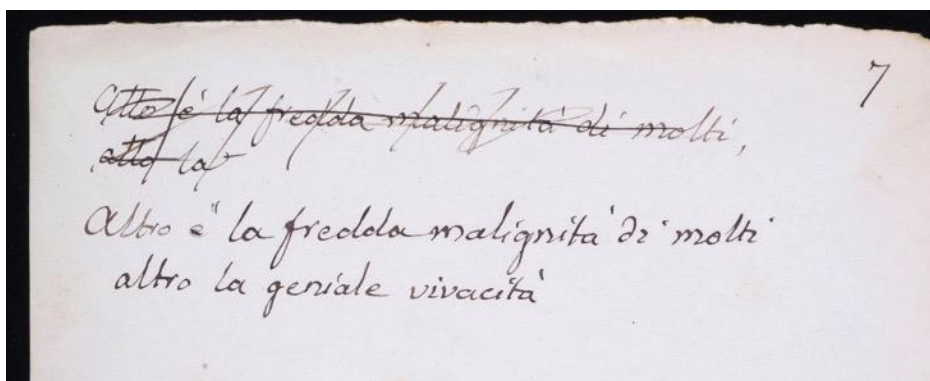 7
Atto è la fredda malignità di molti,
atto la
Altro è la fredda malignità di molti
altro la geniale vivacità